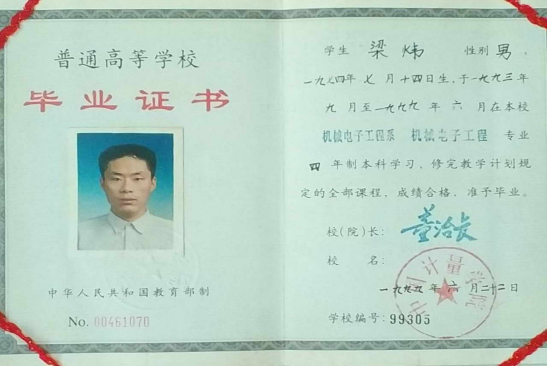 普通高等学校
毕业证书
中华人民共和国教育部制
No. 00461070
学生 梁炜 性别 男，
一九七四年七月十四日生，于一九九三年
九月至一九九九年六月在本校
机械电子工程系 机械电子工程 专业
四年制本科学习，修完教学计划规
定的全部课程，成绩合格，准予毕业。
校(院)长：
校 名：
中国计量学院
一九九九年六月二十二日
学校编号：99305